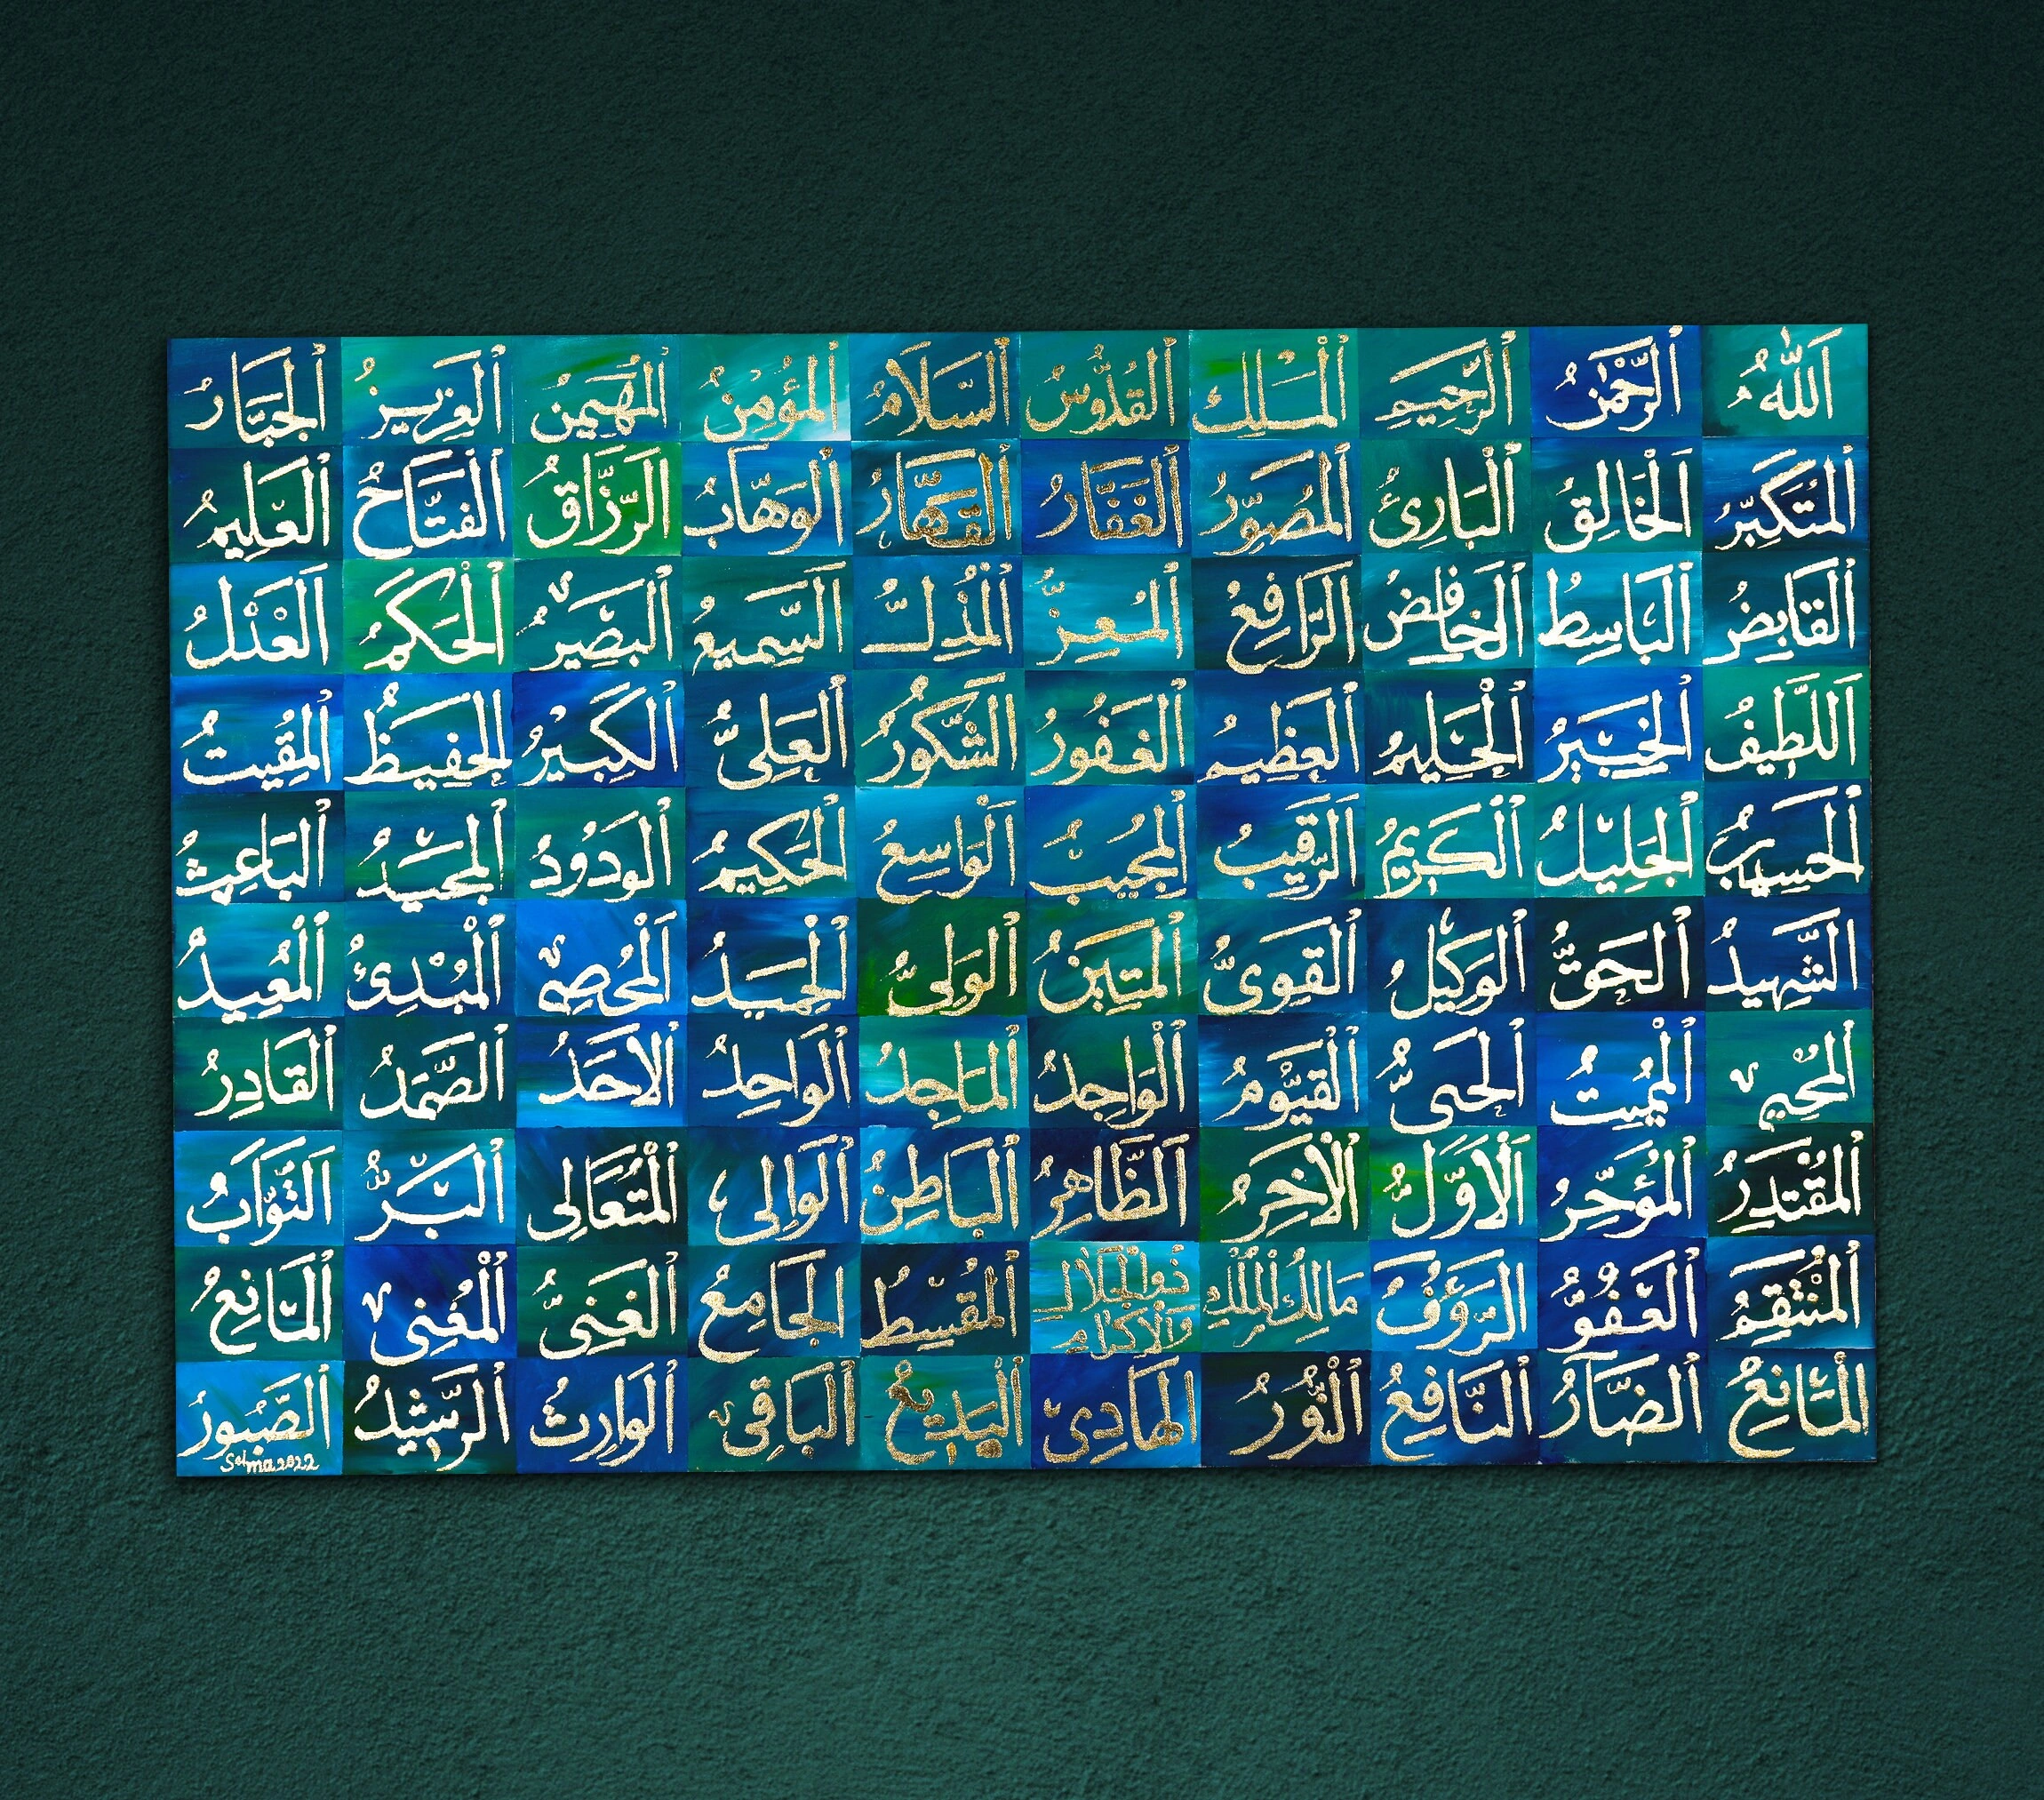 اَللّٰهُ ٱلرَّحْمٰنُ ٱلرَّحِيمُ ٱلْمَلِكُ ٱلْقُدُّوسُ ٱلسَّلَامُ ٱلْمُؤْمِنُ ٱلْمُهَيْمِنُ ٱلْعَزِيزُ ٱلْجَبَّارُ
ٱلْمُتَكَبِّرُ ٱلْخَالِقُ ٱلْبَارِئُ ٱلْمُصَوِّرُ ٱلْغَفَّارُ ٱلْقَهَّارُ ٱلْوَهَّابُ ٱلرَّزَّاقُ ٱلْفَتَّاحُ ٱلْعَلِيمُ
ٱلْقَابِضُ ٱلْبَاسِطُ ٱلْخَافِضُ ٱلرَّافِعُ ٱلْمُعِزُّ ٱلْمُذِلُّ ٱلسَّمِيعُ ٱلْبَصِيرُ ٱلْحَكَمُ ٱلْعَدْلُ
ٱللَّطِيفُ ٱلْخَبِيرُ ٱلْحَلِيمُ ٱلْعَظِيمُ ٱلْغَفُورُ ٱلشَّكُورُ ٱلْعَلِىُّ ٱلْكَبِيرُ ٱلْحَفِيظُ ٱلْمُقِيتُ
ٱلْحَسِيبُ ٱلْجَلِيلُ ٱلْكَرِيمُ ٱلرَّقِيبُ ٱلْمُجِيبُ ٱلْوَاسِعُ ٱلْحَكِيمُ ٱلْوَدُودُ ٱلْمَجِيدُ ٱلْبَاعِثُ
ٱلشَّهِيدُ ٱلْحَقُّ ٱلْوَكِيلُ ٱلْقَوِىُّ ٱلْمَتِينُ ٱلْوَلِىُّ ٱلْحَمِيدُ ٱلْمُحْصِى ٱلْمُبْدِئُ ٱلْمُعِيدُ
ٱلْمُحْيِى ٱلْمُمِيتُ ٱلْحَىُّ ٱلْقَيُّومُ ٱلْوَاجِدُ ٱلْمَاجِدُ ٱلْوَاحِدُ ٱلْأَحَدُ ٱلصَّمَدُ ٱلْقَادِرُ
ٱلْمُقْتَدِرُ ٱلْمُؤَخِّرُ ٱلْأَوَّلُ ٱلْآخِرُ ٱلظَّاهِرُ ٱلْبَاطِنُ ٱلْوَالِى ٱلْمُتَعَالِى ٱلْبَرُّ ٱلتَّوَّابُ
ٱلْمُنْتَقِمُ ٱلْعَفُوُّ ٱلرَّؤُفُ مَالِكُ ٱلْمُلْكِ ذُو ٱلْجَلَالِ وَٱلْإِكْرَامِ ٱلْمُقْسِطُ ٱلْجَامِعُ ٱلْغَنِىُّ ٱلْمُغْنِى ٱلْمَانِعُ
ٱلْمَانِعُ ٱلضَّارُّ ٱلنَّافِعُ ٱلنُّورُ ٱلْهَادِى ٱلْبَدِيعُ ٱلْبَاقِى ٱلْوَارِثُ ٱلرَّشِيدُ ٱلصَّبُورُ
Selma 2022